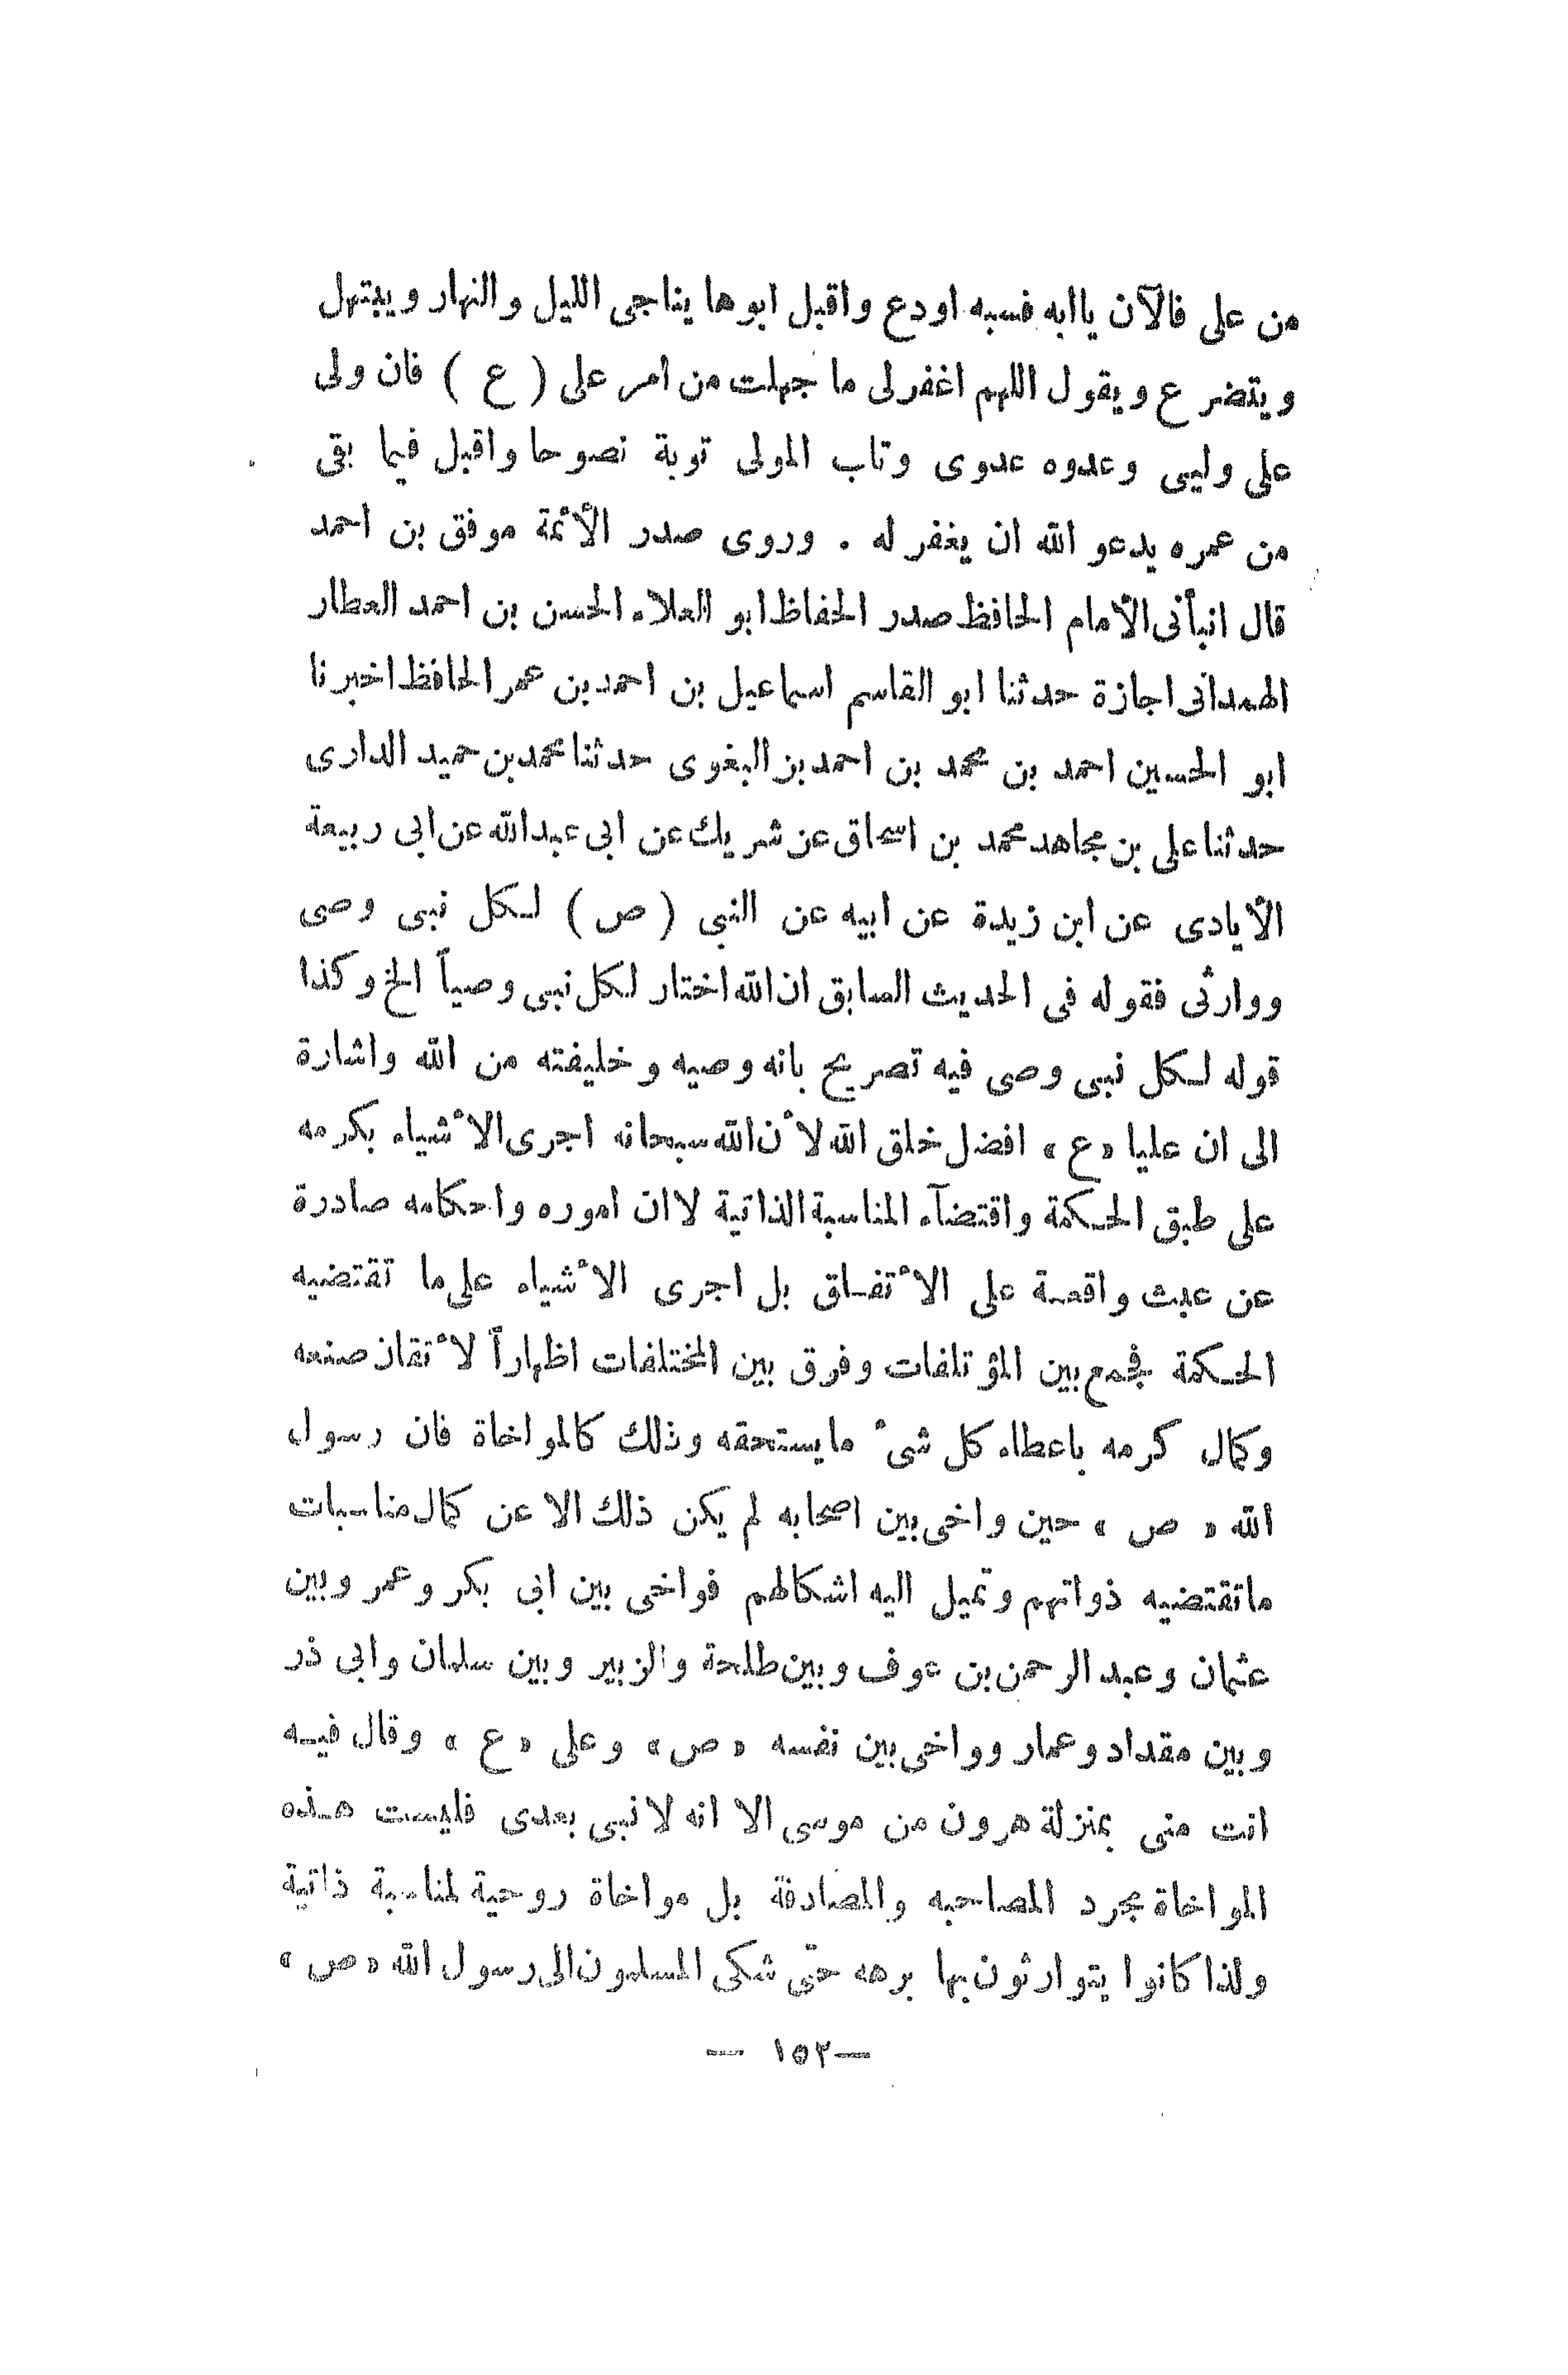 من على فالآن ياابه فسبه اودع واقبل ابوها يناجى الليل والنهار ويبتهل
ويتضر ع ويقول اللهم اغفرلى ما جهلت من امر على ( ع ) فان ولى
على وليى وعدوه عدوى وتاب المولى توبة نصوحا واقبل فيما بقى
من عمره يدعو الله ان يغفر له . وروى صدر الأئمة موفق بن احمد
قال انبأنى الأمام الحافظ صدر الحفاظ ابو العلاء الحسن بن احمد العطار
الهمدانى اجازة حدثنا ابو القاسم اسماعيل بن احمد بن عمر الحافظ اخبرنا
ابو الحسين احمد بن محمد بن احمد بز البغوى حدثنا محمد بن حميد الدارى
حدثنا على بن مجاهد محمد بن اسحاق عن شريك عن ابى عبدالله عن ابى ربيعة
الأيادى عن ابن زيدة عن ابيه عن النبي ( ص ) لكل نبى وصى
ووارثى فقوله فى الحديث السابق ان الله اختار لكل نبى وصياً الخ وكذا
قوله لكل نبى وصى فيه تصريح بانه وصيه وخليفته من الله واشارة
الى ان عليا «ع» افضل خلق الله لأن الله سبحانه اجرى الأشياء بكرمه
على طبق الحكمة واقتضآء المناسبة الذاتية لاان اموره واحكامه صادرة
عن عبث واقعة على الأتفاق بل اجرى الأشياء على ما تقتضيه
الحكمة فجمع بين المؤتلفات وفرق بين المختلفات اظهاراً لأتقان صنعه
وكمال كرمه باعطاء كل شىء مايستحقه وذلك كالمواخاة فان رسول
الله « ص » حين واخى بين اصحابه لم يكن ذلك الا عن كمال مناسبات
ماتقتضيه ذواتهم وتميل اليه اشكالهم فواخى بين ابى بكر وعمر وبين
عثمان وعبد الرحمن بن عوف وبين طلحة والزبير وبين سلمان وابى ذر
وبين مقداد وعمار وواخى بين نفسه «ص» وعلى «ع» وقال فيه
انت منى بمنزلة هرون من موسى الا انه لا نبى بعدى فليست هذه
المواخاة بمجرد المصاحبه والمصادقة بل مواخاة روحية لمناسبة ذاتية
ولذا كانوا يتوارثون بها برهه حتّى شكى المسلمون الى رسول الله «ص»
— ١٥٢ —